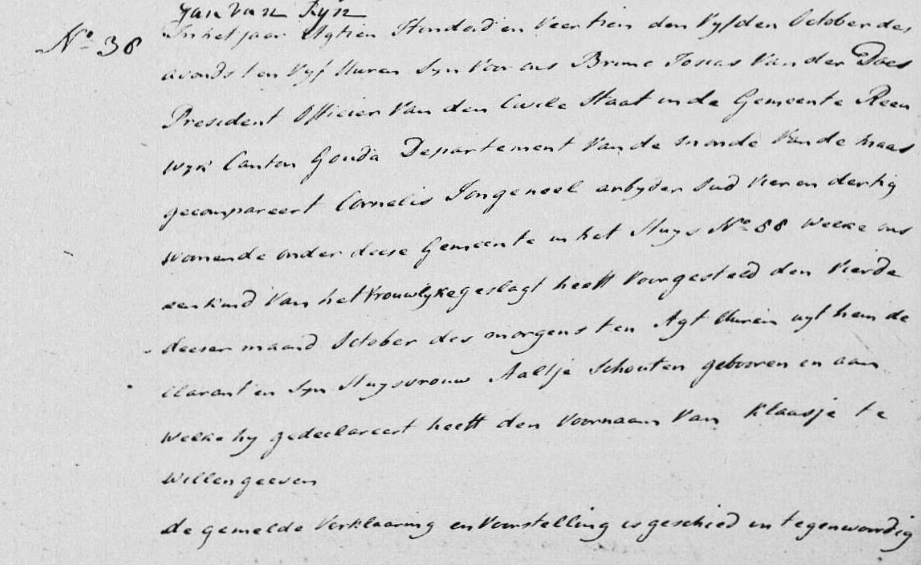 Jan van Ryn
N° 38 In het jaar Agtien Honderd en Veertien den Vyfden October des
avonds ten Vyf Uuren syn voor ons Bruno Josias Van der Does
President Officier Van den Civile Staat in de Gemeente Reeu
wyk Canton Gouda Departement Van de monde Van de Maas
gecompareert Cornelis Jongeneel arbyder oud vier en dertig
woonende onder deese Gemeente in het Huys N° 88 welke ons
een kind Van het Vrouwlyke geslagt heeft voorgesteld den Vierde
deeser maand October des morgens ten Agt Uuren uyt hem de
clarant en syn Huysvrouw Aaltje Schouten gebooren en aan
welke hy gedeclareert heeft den Voornaam Van Klaasje te
willen geeven
de gemelde Verklaaring en Voorstelling is geschied in tegenwoordig